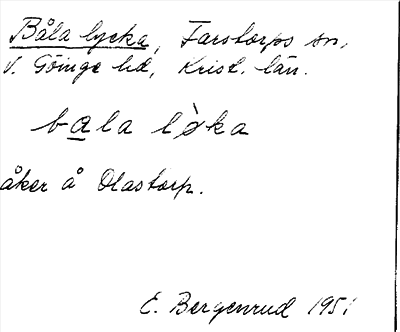 Båla lycka, Farstorps sn,
V. Göinge hd, Krist. län.
bala lỳka
åker å Olastorp.
E. Bergenrud 1951